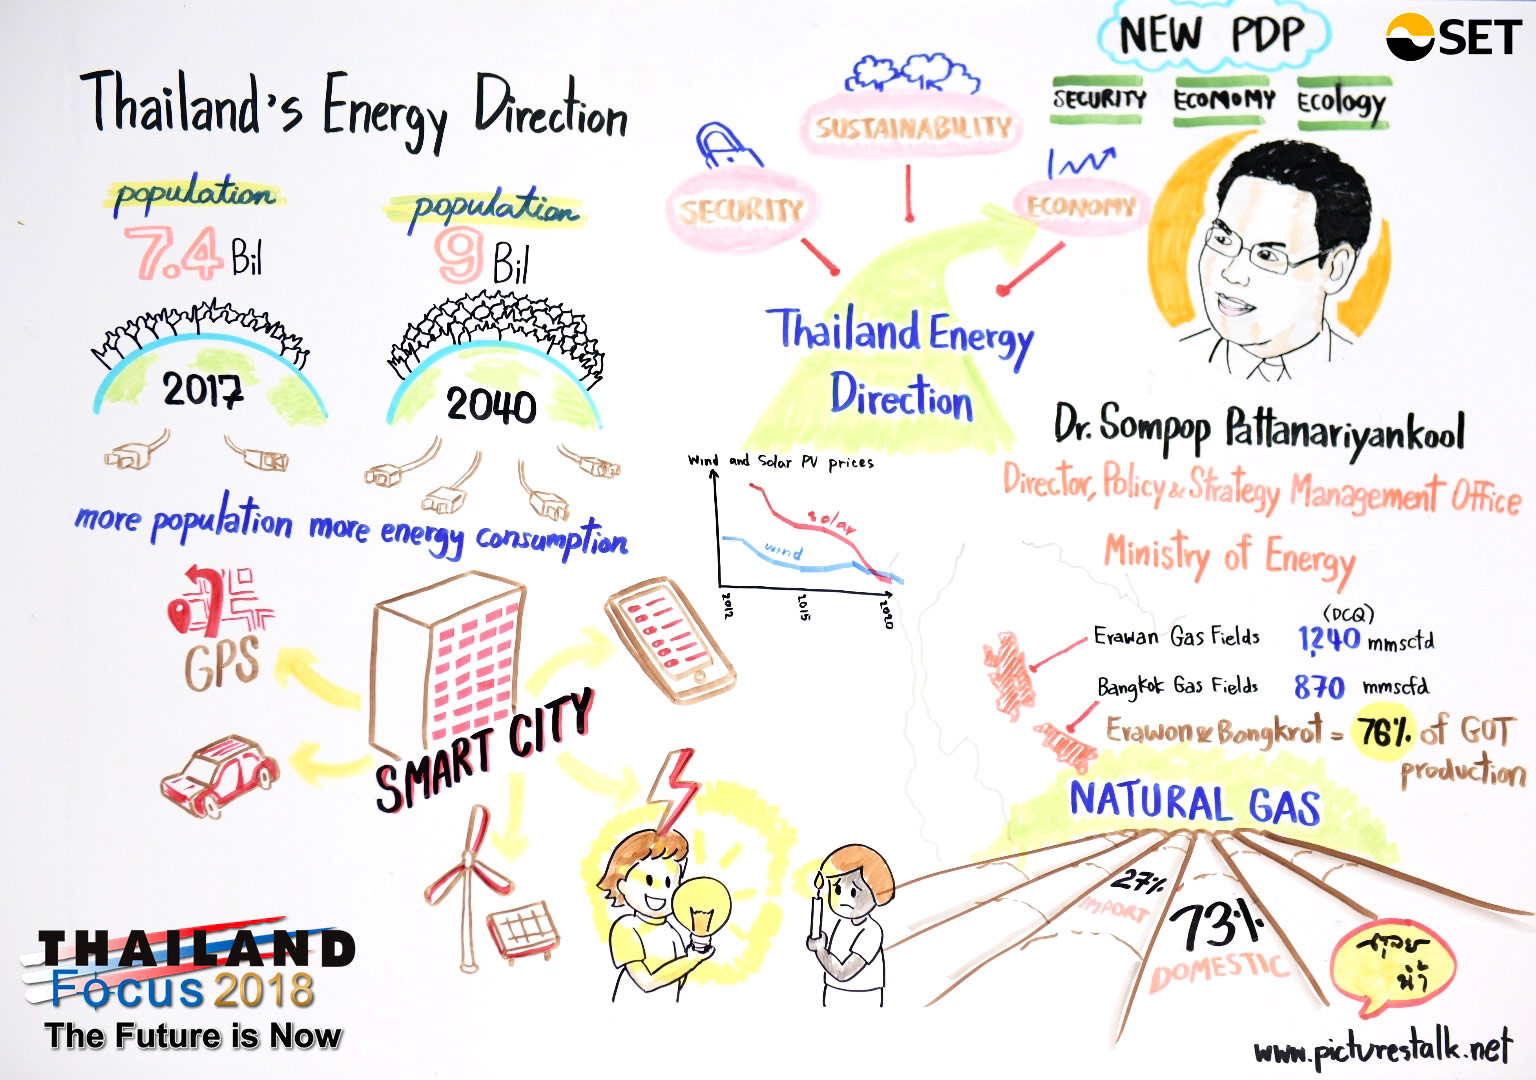 Thailand's Energy Direction
population
7.4 Bil
2017
population
9 Bil
2040
more population more energy consumption
GPS
SMART CITY
THAILAND
Focus 2018
The Future is Now
SECURITY
SUSTAINABILITY
ECONOMY
Thailand Energy
Direction
Wind and Solar PV prices
solar
wind
2012
2015
2020
NEW PDP
SECURITY
ECOMOMY
Ecology
SET
Dr. Sompop Pattanariyankool
Director, Policy & Strategy Management Office
Ministry of Energy
(DCQ)
Erawan Gas Fields 1,240 mmscfd
Bangkok Gas Fields 870 mmscfd
Erawon & Bongkrot = 76% of GOT
production
NATURAL GAS
27%
IMPORT
73%
DOMESTIC
www.picturestalk.net